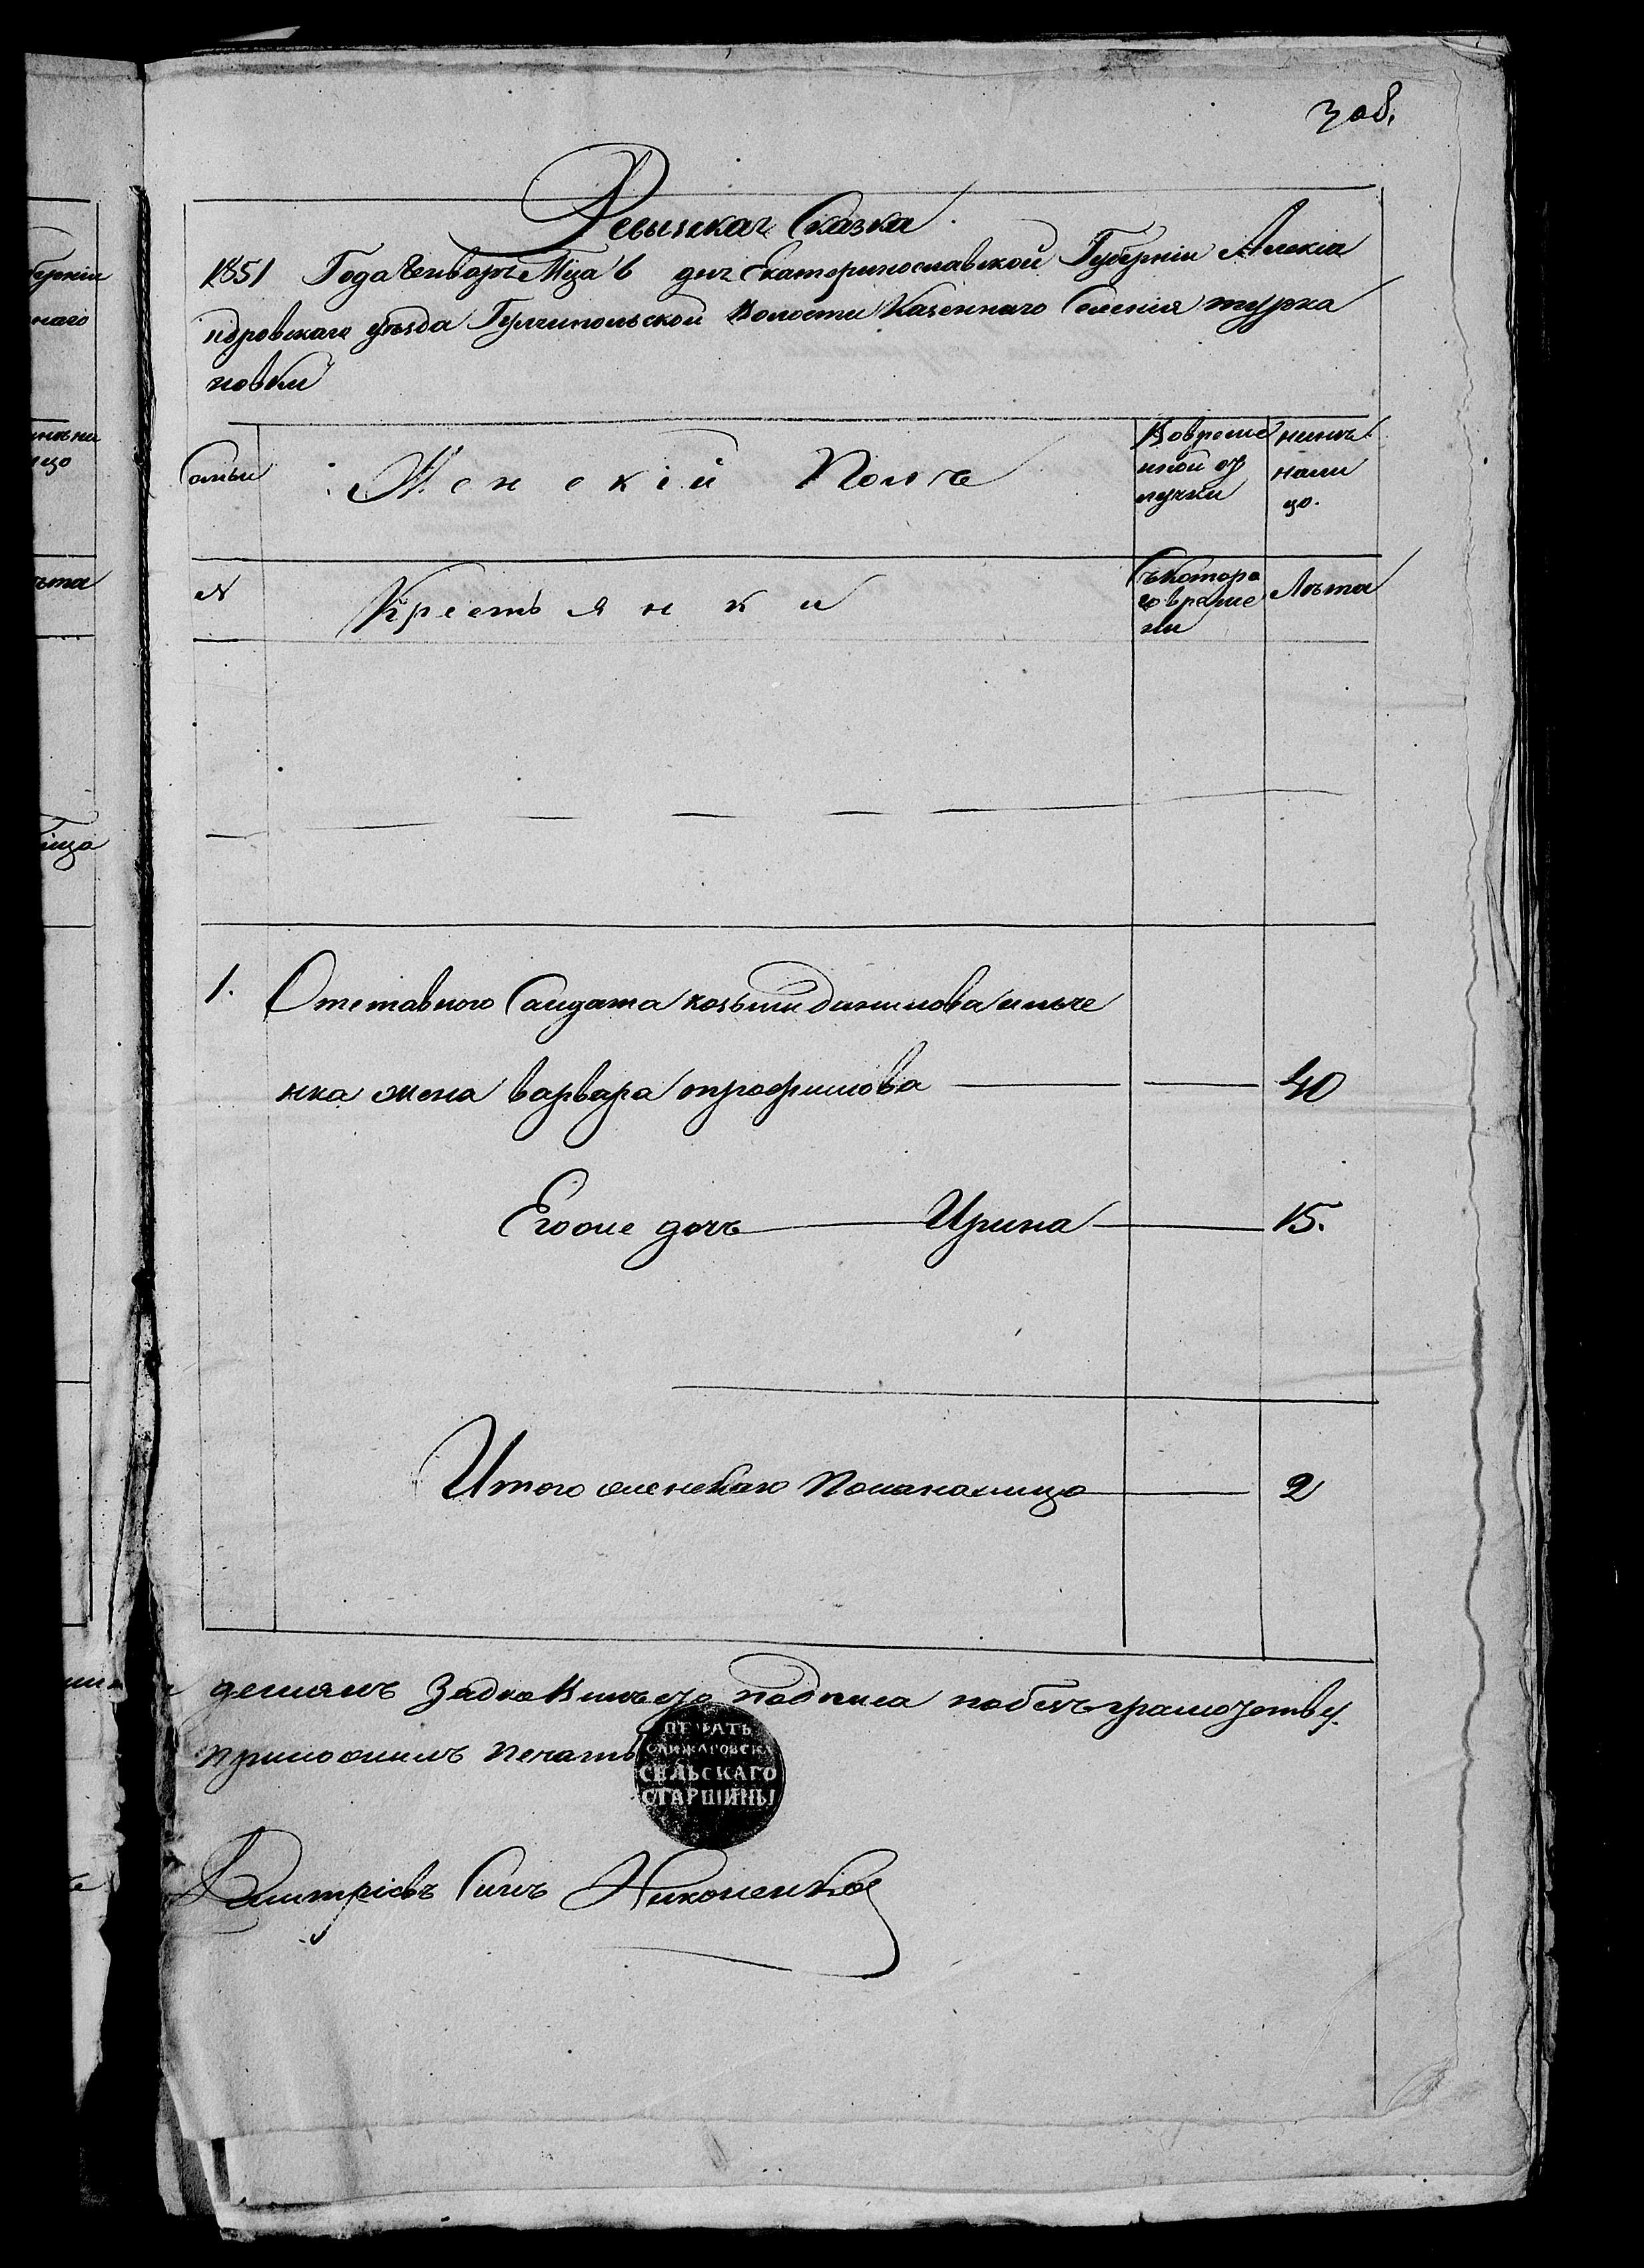 308.
Ревизская Сказка
1851 Года Генваря Мца 6 дня Екатеринославской Губерніи Алексіа
ндровскаго уезда Гуляипольской Волости Казеннаго Селенія туржа
новки
Семьи
Женскій Полъ
Вовреме
нной от
лучки
нынъ
нали
цо.
№
Крестьянки
Съкотора
го време
ни
Лета
1. Отставного Салдата козьмы данилова
нка жена варвара трофимова 40
Егоже дочь Ирина 15.
Итого женскаго Поланалицо 2
демянъ вместо подписа побезъграмотству
приложилъ печать
ПЕЧАТЬ
СЕЛЬСКАГО
СТАРШИНЫ
Дмитріевъ Сынъ Никоненков
берніи
наго
ета